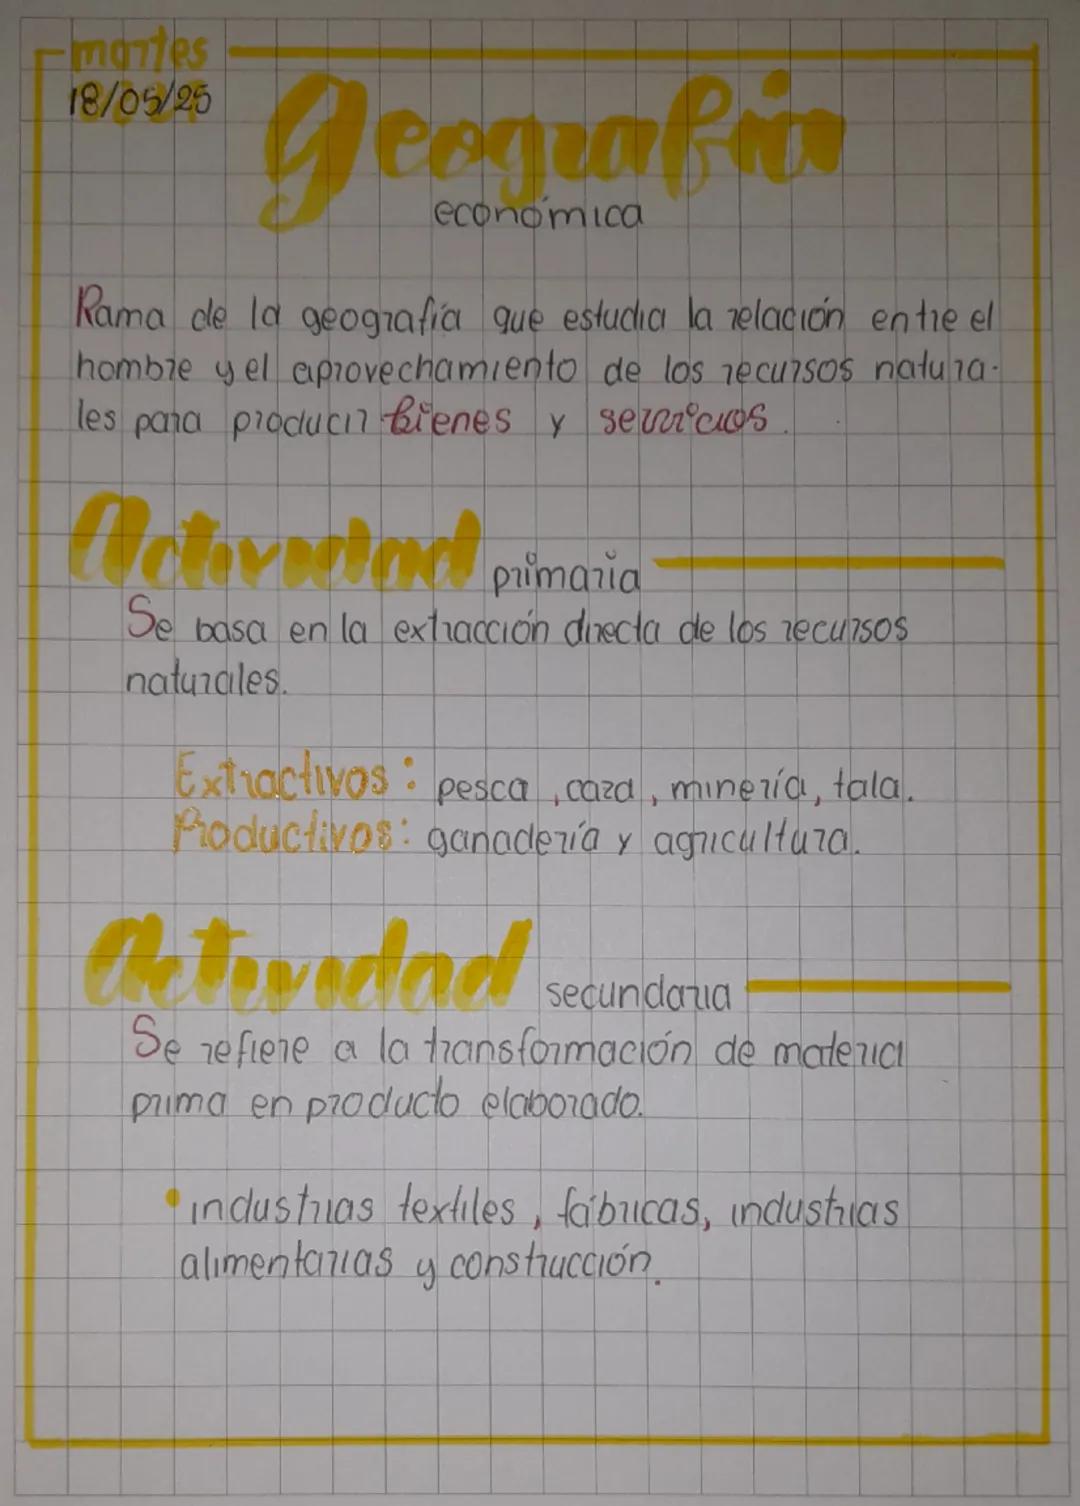 martes
18/05/25
Geografía
económica
Rama de la geografía que estudia la relación entre el
hombre y el aprovechamiento de los recursos natura-
les para producir bienes y servicios.
Actividad primaria
Se basa en la extracción directa de los recursos
naturales.
Extractivos: pesca, caza, minería, tala.
Productivos: ganadería y agricultura.
Actividad secundaria
Se refiere a la transformación de materia
prima en producto elaborado.
• industrias textiles, fábricas, industrias
alimentarias y construcción.